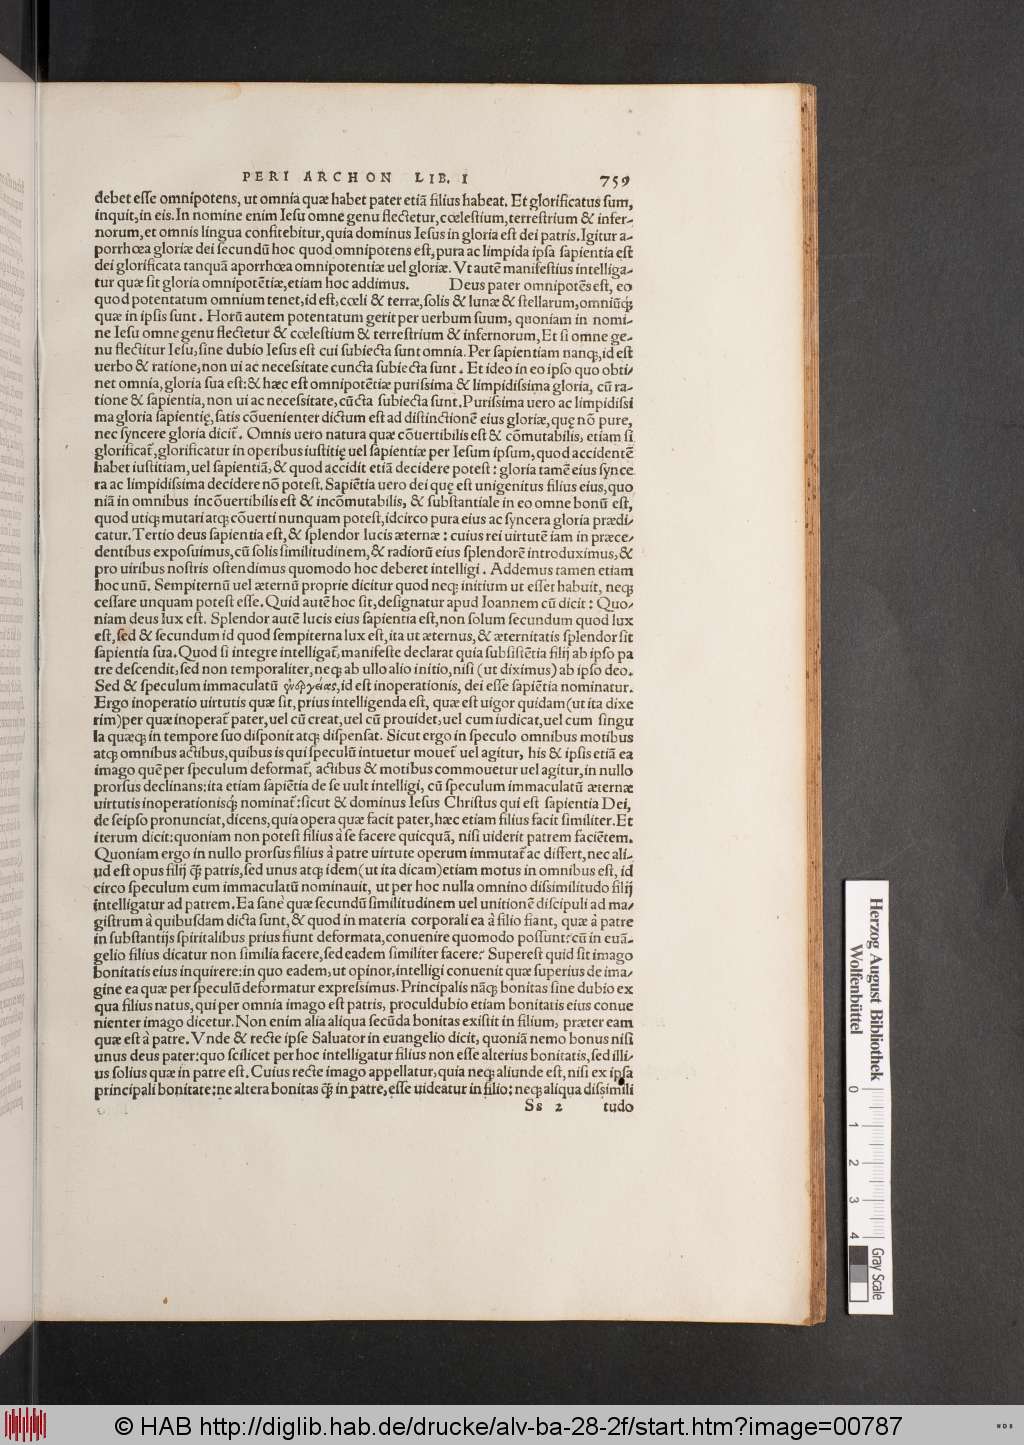 PERI ARCHON LIB. I 759
debet esse omnipotens, ut omnia quæ habet pater etiã filius habeat. Et glorificatus sum,
inquit, in eis. In nomine enim Iesu omne genu flectetur, cœlestium, terrestrium & infer-
norum, et omnis lingua confitebitur, quia dominus Iesus in gloria est dei patris. Igitur a-
porrhœa gloriæ dei secundũ hoc quod omnipotens est, pura ac limpida ipsa sapientia est
dei glorificata tanquã aporrhœa omnipotentiæ uel gloriæ. Vt autẽ manifestius intelliga-
tur quæ sit gloria omnipotẽtiæ, etiam hoc addimus. Deus pater omnipotẽs est, eo
quod potentatum omnium tenet, id est, cœli & terræ, solis & lunæ & stellarum, omniũq;
quæ in ipsis sunt. Horũ autem potentatum gerit per uerbum suum, quoniam in nomi-
ne Iesu omne genu flectetur & cœlestium & terrestrium & infernorum, Et si omne ge-
nu flectitur Iesu, sine dubio Iesus est cui subiecta sunt omnia. Per sapientiam nanq;, id est
uerbo & ratione, non ui ac necessitate cuncta subiecta sunt. Et ideo in eo ipso quo obti-
net omnia, gloria sua est: & hæc est omnipotẽtiæ purissima & limpidissima gloria, cũ ra-
tione & sapientia, non ui ac necessitate, cũcta subiecta sunt. Purissima uero ac limpidissi
ma gloria sapientię, satis cõuenienter dictum est ad distinctionẽ eius gloriæ, quę nõ pure,
nec syncere gloria dicit̃. Omnis uero natura quæ cõuertibilis est & cõmutabilis, etiam si
glorificat̃, glorificatur in operibus iustitię uel sapientiæ per Iesum ipsum, quod accidentẽ
habet iustitiam, uel sapientiã, & quod accidit etiã decidere potest: gloria tamẽ eius synce
ra ac limpidissima decidere nõ potest. Sapiẽtia uero dei quę est unigenitus filius eius, quo
niã in omnibus incõuertibilis est & incõmutabilis, & substantiale in eo omne bonũ est,
quod utiq; mutari atq; cõuerti nunquam potest, idcirco pura eius ac syncera gloria prædi-
catur. Tertio deus sapientia est, & splendor lucis æternæ: cuius rei uirtutẽ iam in præce-
dentibus exposuimus, cũ solis similitudinem, & radiorũ eius splendorẽ introduximus, &
pro uiribus nostris ostendimus quomodo hoc deberet intelligi. Addemus tamen etiam
hoc unũ. Sempiternũ uel æternũ proprie dicitur quod neq; initium ut esset habuit, neq;
cessare unquam potest esse. Quid autẽ hoc sit, designatur apud Ioannem cũ dicit: Quo-
niam deus lux est. Splendor autẽ lucis eius sapientia est, non solum secundum quod lux
est, sed & secundum id quod sempiterna lux est, ita ut æternus, & æternitatis splendor sit
sapientia sua. Quod si integre intelligat̃, manifeste declarat quia subsistẽtia filij ab ipso pa
tre descendit, sed non temporaliter, neq; ab ullo alio initio, nisi (ut diximus) ab ipso deo.
Sed & speculum immaculatũ ἐνεργείας, id est inoperationis, dei esse sapiẽtia nominatur.
Ergo inoperatio uirtutis quæ sit, prius intelligenda est, quæ est uigor quidam (ut ita dixe
rim) per quæ inoperat̃ pater, uel cũ creat, uel cũ prouidet, uel cum iudicat, uel cum singu
la quæq; in tempore suo disponit atq; dispensat. Sicut ergo in speculo omnibus motibus
atq; omnibus actibus, quibus is qui speculũ intuetur mouet̃ uel agitur, his & ipsis etiã ea
imago quẽ per speculum deformat̃, actibus & motibus commouetur uel agitur, in nullo
prorsus declinans: ita etiam sapiẽtia de se uult intelligi, cũ speculum immaculatũ æternæ
uirtutis inoperationisq́; nominat̃: sicut & dominus Iesus Christus qui est sapientia Dei,
de seipso pronunciat, dicens, quia opera quæ facit pater, hæc etiam filius facit similiter. Et
iterum dicit: quoniam non potest filius à se facere quicquã, nisi uiderit patrem faciẽtem.
Quoniam ergo in nullo prorsus filius à patre uirtute operum immutat̃ ac differt, nec ali-
ud est opus filij q̃ patris, sed unus atq; idem (ut ita dicam) etiam motus in omnibus est, id
circo speculum eum immaculatũ nominauit, ut per hoc nulla omnino dissimilitudo filij
intelligatur ad patrem. Ea sane quæ secundũ similitudinem uel unitionẽ discipuli ad ma-
gistrum à quibusdam dicta sunt, & quod in materia corporali ea à filio fiant, quæ à patre
in substantijs spiritalibus prius fiunt deformata, conuenire quomodo possunt: cũ in euã-
gelio filius dicatur non similia facere, sed eadem similiter facere? Superest quid sit imago
bonitatis eius inquirere: in quo eadem, ut opinor, intelligi conuenit quæ superius de ima-
gine ea quæ per speculũ deformatur expressimus. Principalis nãq; bonitas sine dubio ex
qua filius natus, qui per omnia imago est patris, proculdubio etiam bonitatis eius conue
nienter imago dicetur. Non enim alia aliqua secũda bonitas existit in filium, præter eam
quæ est à patre. Vnde & recte ipse Saluator in euangelio dicit, quoniã nemo bonus nisi
unus deus pater: quo scilicet per hoc intelligatur filius non esse alterius bonitatis, sed illi-
us solius quæ in patre est. Cuius recte imago appellatur, quia neq; aliunde est, nisi ex ipsa
principali bonitate: ne altera bonitas q̃ in patre, esse uideatur in filio: neq; aliqua dissimili
Ss 2 tudo
Herzog August Bibliothek
Wolfenbüttel
0 1 2 3 4
Gray Scale
© HAB http://diglib.hab.de/drucke/alv-ba-28-2f/start.htm?image=00787